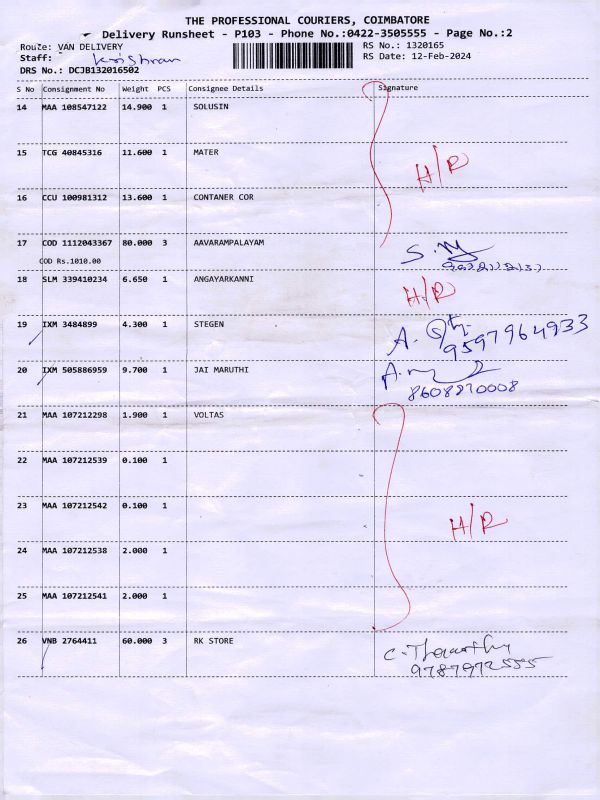 THE PROFESSIONAL COURIERS, COIMBATORE
Delivery Runsheet - P103 - Phone No.:0422-3505555 - Page No.:2
Route: VAN DELIVERY RS No.: 1320165
Staff: Krishnan RS Date: 12-Feb-2024
DRS No.: DCJB132016502
S No Consignment No Weight PCS Consignee Details Signature
14 MAA 108547122 14.900 1 SOLUSIN
15 TCG 40845316 11.600 1 MATER
H/R
16 CCU 100981312 13.600 1 CONTANER COR
17 COD 1112043367 80.000 3 AAVARAMPALAYAM S.M
COD Rs.1010.00
18 SLM 339410234 6.650 1 ANGAYARKANNI H/R
19 IXM 3484899 4.300 1 STEGEN A.
9597964933
20 IXM 505886959 9.700 1 JAI MARUTHI
8608820008
21 MAA 107212298 1.900 1 VOLTAS
22 MAA 107212539 0.100 1
23 MAA 107212542 0.100 1
H/R
24 MAA 107212538 2.000 1
25 MAA 107212541 2.000 1
26 VNB 2764411 60.000 3 RK STORE C.
9787972555